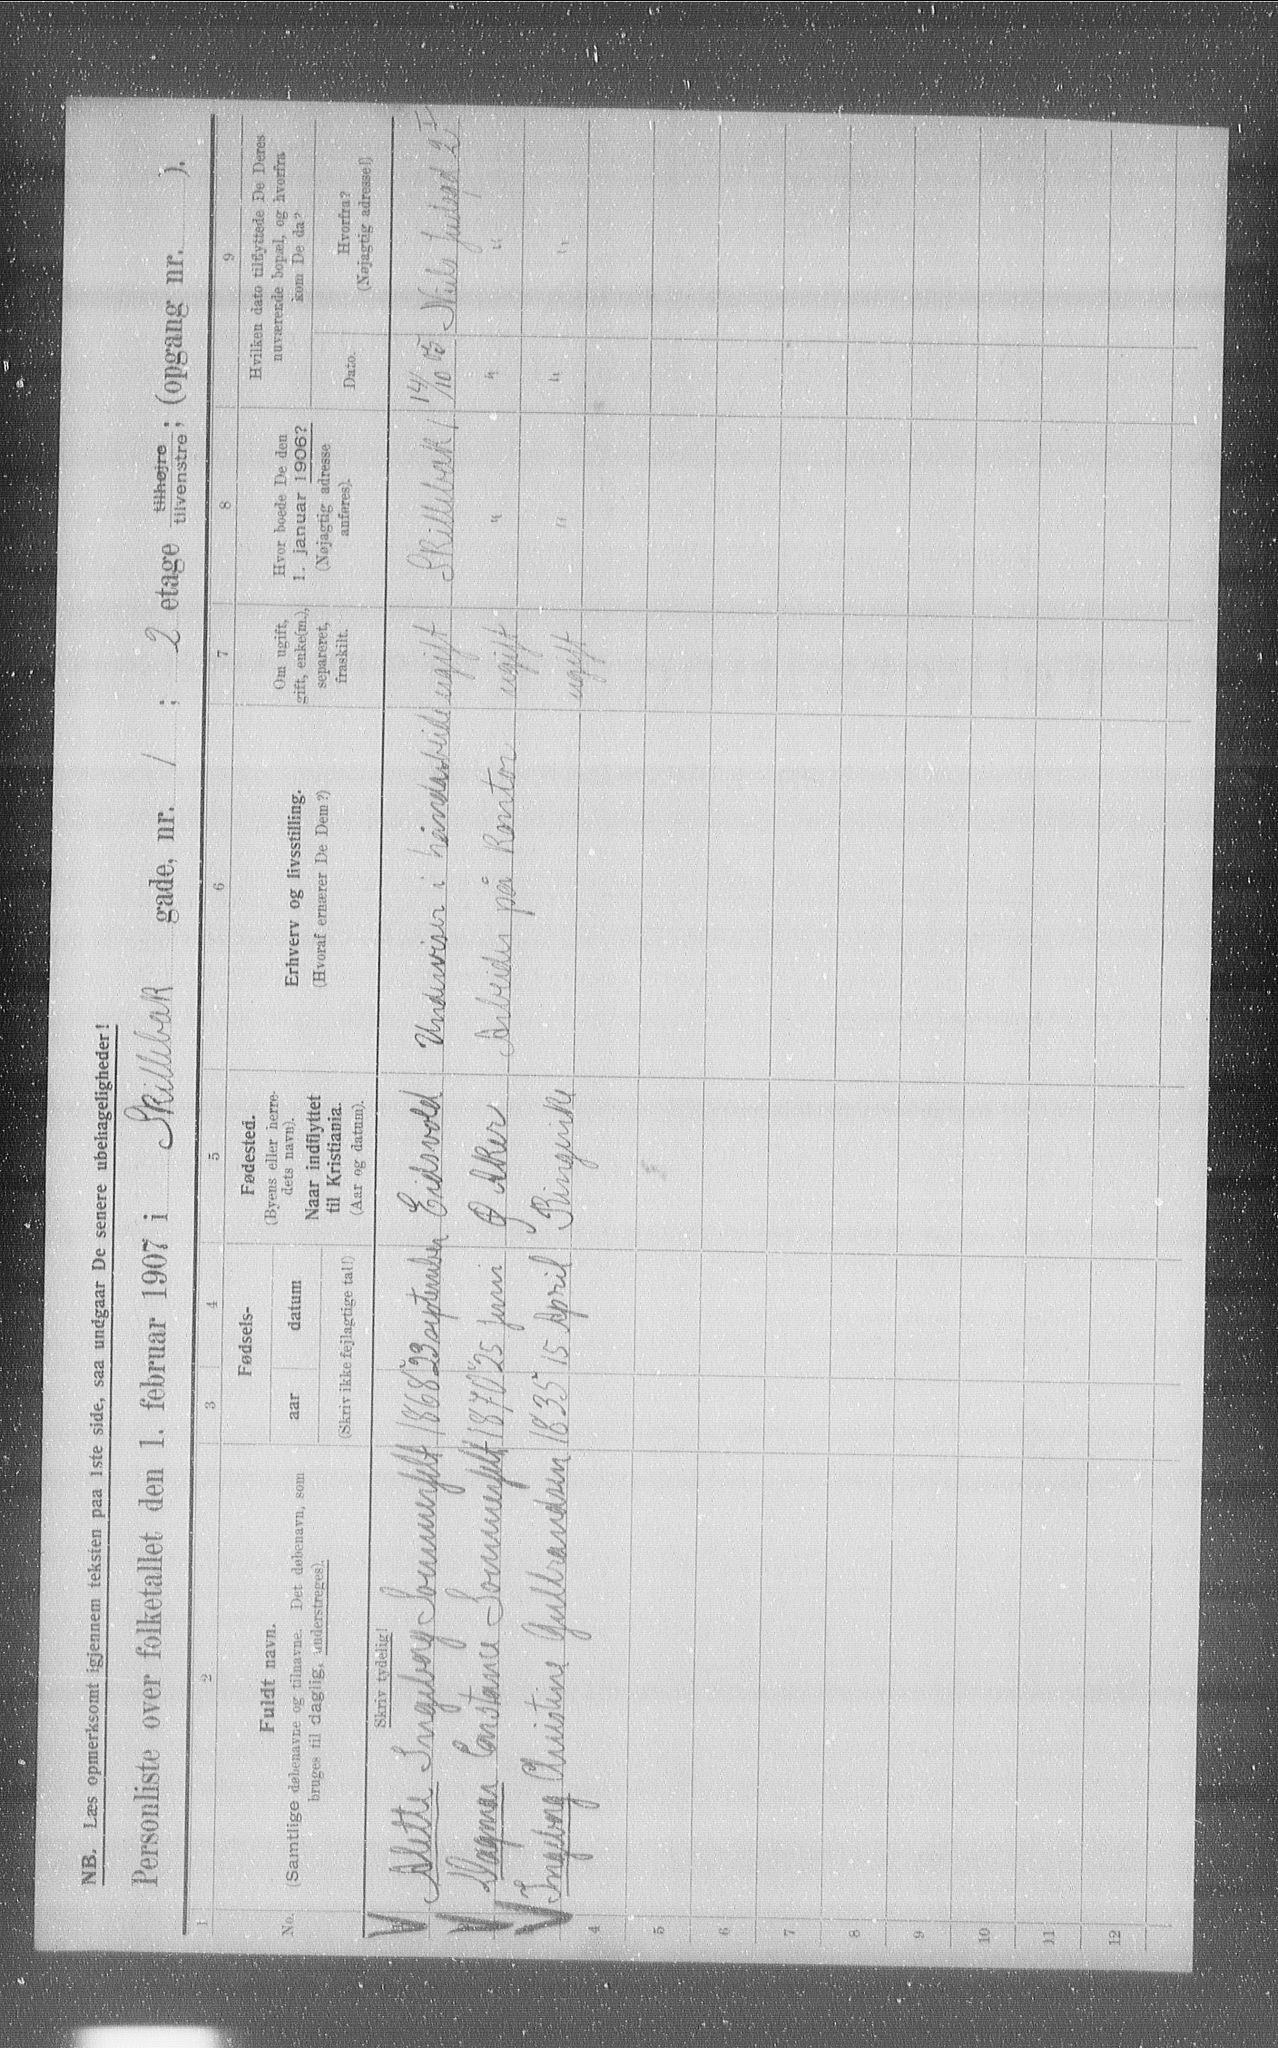 NB. Læs opmerksomt igjennem teksten paa 1ste side, saa undgaar De senere ubehageligheder!
Personliste over folketallet den 1. februar 1907 i Skillebæk gade, nr. 1 ; 2 etage tilhøjre tilvenstre; (opgang nr. ).
1 2 3 4 5 6 7 8 9
No.
Fuldt navn.
(Samtlige døbenavne og tilnavne. Det døbenavn, som
bruges til daglig, understreges).
Fødsels-
aar datum
(Skriv ikke fejlagtige tal!)
Fødested.
(Byens eller herre-
dets navn).
Naar indflyttet
til Kristiania.
(Aar og datum).
Erhverv og livsstilling.
(Hvoraf ernærer De Dem?)
Om ugift,
gift, enke(m.),
separeret,
fraskilt.
Hvor boede De den
1. januar 1906?
(Nøjagtig adresse
anføres).
Hvilken dato tilflyttede De Deres
nuværende bopæl, og hvorfra
kom De da?
Dato.
Hvorfra?
(Nøjagtig adresse!)
Skriv tydelig!
Alette Ingeborg Sommerfelt 1868 23 september Eidsvold Underviser i håndarbeide ugift Skillebæk 1 14/10 05 Niels Juelsgd 25
Dagmar Constance Sommerfelt 1870 25 Juni Aker Arbeider på Kontor ugift " " "
Ingeborg Christine Gulbrandsen 1835 15 April Ringerike ugift " " "
4
5
6
7
8
9
10
11
12